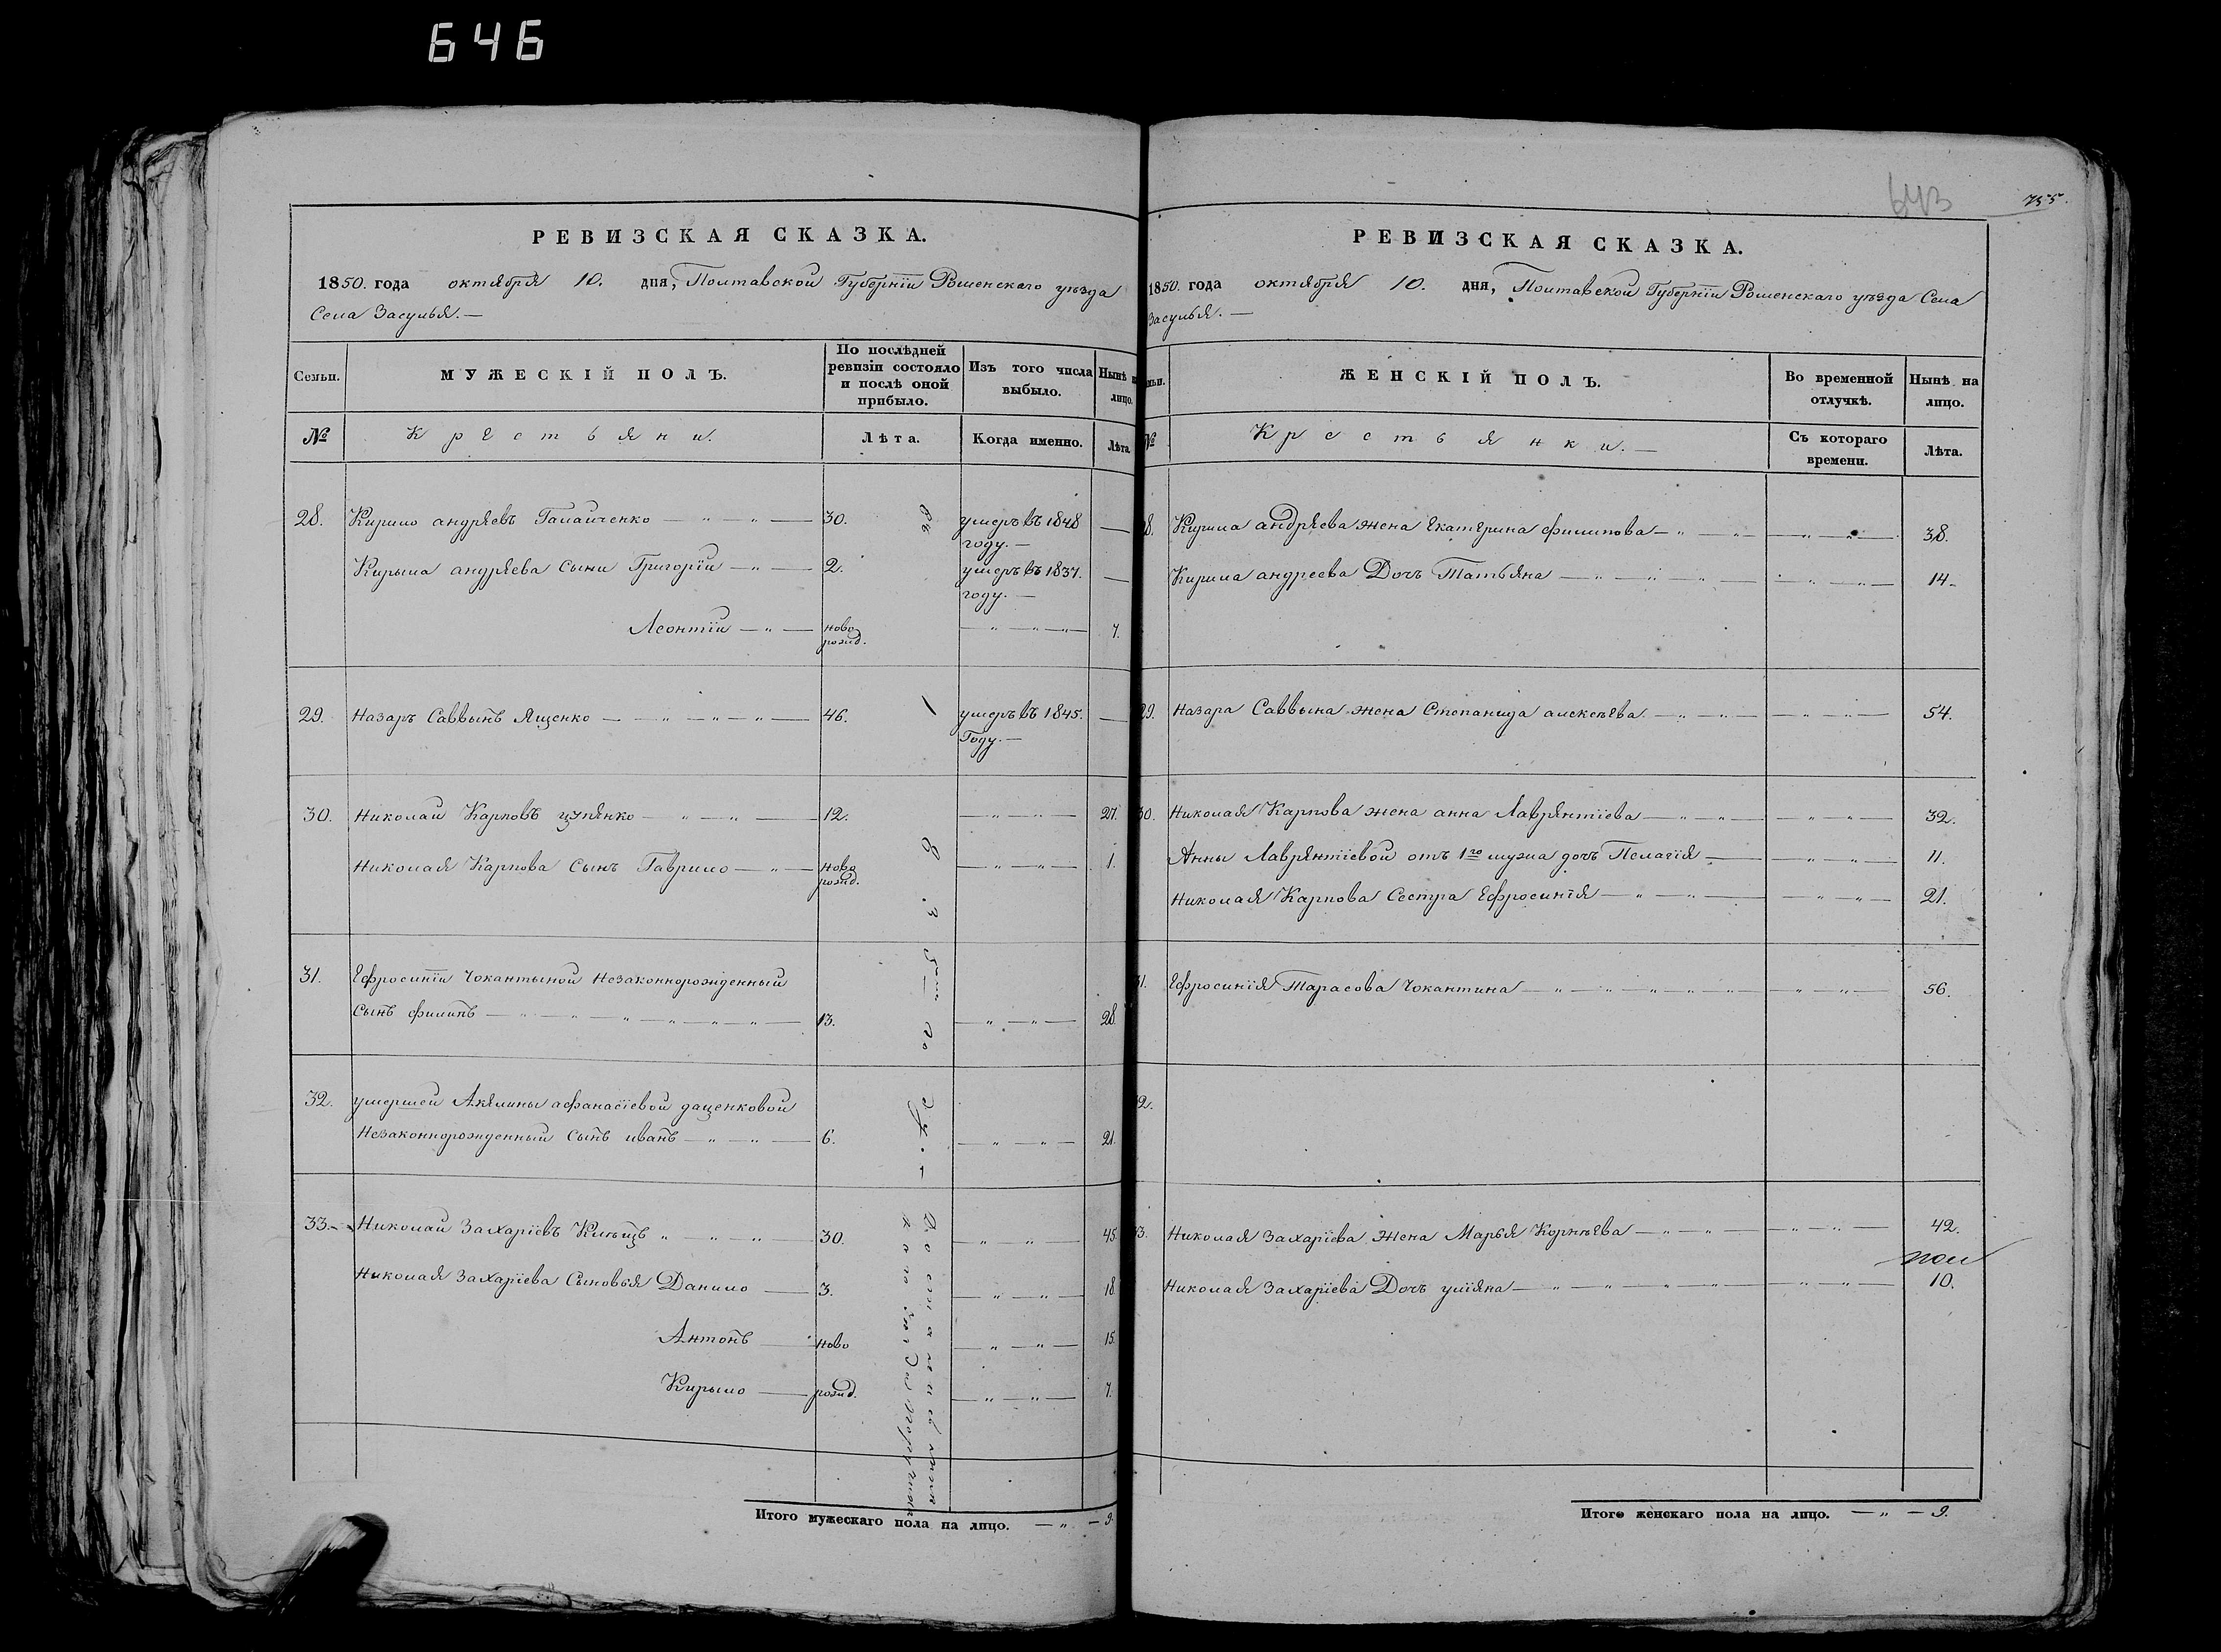 646
РЕВИЗСКАЯ СКАЗКА.
1850. года октября 10. дня, Полтавской Губернїи Роменскаго уѣзда
Села Засулья. —
Семьи. МУЖЕСКІЙ ПОЛЪ. По послѣдней ревизіи состояло и послѣ оной прибыло. Изъ того числа выбыло. Нынѣ на лицо.
№ Крестьяни. Лѣта. Когда именно. Лѣта.
28. Кирило андрѣевъ Галайченко — " — " — 30. умеръ въ 1848 году. — —
Кирыла андрѣева сыни Григорїи — " — 2. умеръ въ 1837. году. — —
Леонтїи — " — ново рожд. — " — " — " — 7.
29. Назаръ Саввынъ Ященко — " — " — " — 46. умеръ въ 1845. Году. — —
30. Николай Карповъ цупѣнко — " — " — 12. — " — " — 27.
Николая Карпова сынъ Гаврило — " — ново рожд. — " — " — 1.
31. Ефросинїи Чокантыной Незаконнорожденный
сынъ филипъ — " — " — " — " — " — " — 13. — " — " — 28.
32. умершей Акилины афанасїевой даценковой
Незаконнорожденный сынъ иванъ — " — " — 6. — " — " — 21.
33. Николай Захарїевъ " — " — " — 30. — " — " — 45.
Николая Захарїева сыновья Данило — 3. — " — " — 18.
Антонъ — ново — " — " — 15.
Кирыло — рожд. — " — " — 7.
Итого мужескаго пола на лицо. — " — 9.
643
755.
РЕВИЗСКАЯ СКАЗКА.
1850. года октября 10. дня, Полтавской Губернїи Роменскаго уѣзда Села
Засулья. —
ЖЕНСКІЙ ПОЛЪ. Во временной отлучкѣ. Нынѣ на лицо.
№ Крестьянки. — Съ котораго времени. Лѣта.
28. Кирила андрѣева жена Екатерина филипова — " — " — " — " — 38.
Кирила андреева Дочъ Татьяна — " — " — " — " — " — 14.
29. Назара Саввына жена Степанида алексѣева. — " — " — " — " — 54.
30. Николая Карпова жена анна Лаврѣнтїева — " — " — " — " — 32.
Анны Лаврѣнтїевой отъ 1го мужа дочъ Пелагїя — — " — " — 11.
Николая Карпова Сестра Ефросинїя — " — " — " — " — 21.
31. Ефросинїя Тарасова Чокантина — " — " — " — " — " — " — " — 56.
32.
33. Николая Захарїева Жена Марья Корнѣева — " — " — " — " — 42.
Николая Захарїева Дочъ улїяна — " — " — " — " — " — " — 10.
Итого женскаго пола на лицо. — " — 9.